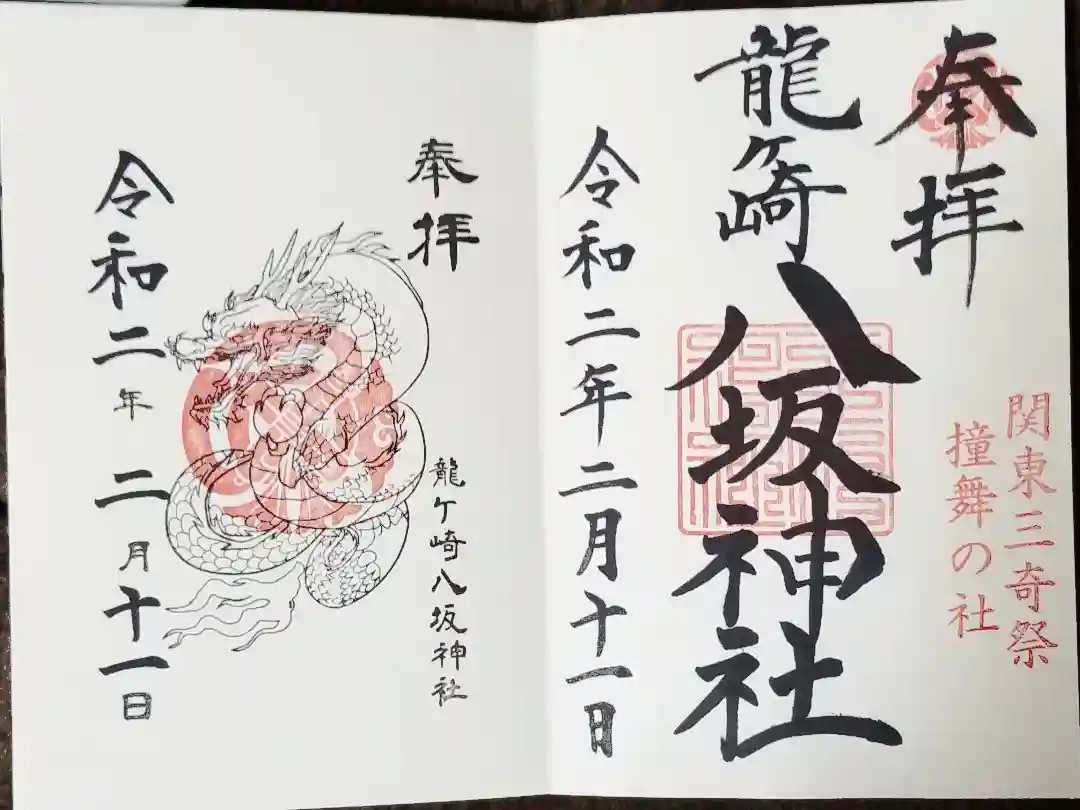 奉拝
関東三奇祭
撞舞の社
龍ヶ崎八坂神社
令和二年二月十一日
奉拝
龍ケ崎八坂神社
令和二年二月十一日